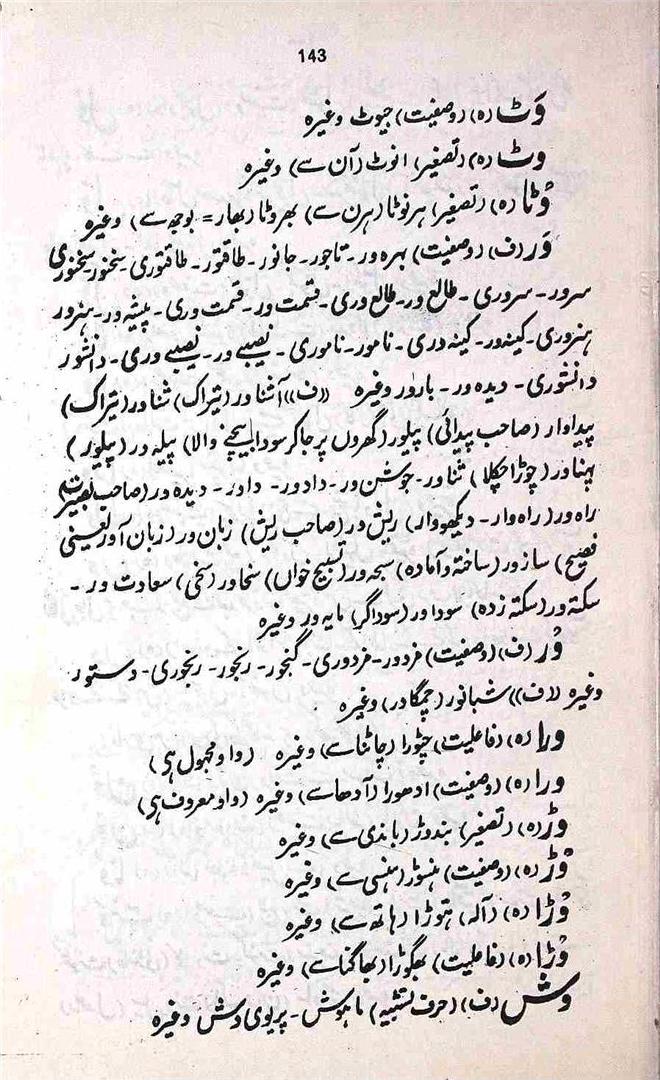 143
وَٹ (ہ) (وصفیت) جیوٹ وغیرہ
وٹ (ہ) (تصغیر) انوٹ (آن سے) وغیرہ
وٹا (ہ) (تصغیر) ہرنوٹا (ہرن سے) بھروٹا (بھار = بوجھ سے) وغیرہ
وَر (ف) (وصفیت) بہرہ ور۔ تاجور۔ جانور۔ طاقتور۔ طاقتوری۔ سخنور سخنوری
سرور۔ سروری۔ طالع ور۔ طالع وری۔ قسمت ور۔ قسمت وری۔ پیشہ ور۔ ہنرور
ہنروری۔ کینہ ور۔ کینہ وری۔ نامور۔ ناموری۔ نصیبے ور۔ نصیبے وری۔ دانشور
دانشوری۔ دیدہ ور۔ بارور وغیرہ ((ف)) آشناور (تیراک) شناور (تیراک)
پیداوار (صاحب پیدائی) پیلور (گھروں پر جاکر سودا بیچنے والا) پیلہ ور (پیلور)
پہناور (چوڑا چکلا) ثناور۔ جوشن ور۔ دادور۔ داور۔ دیدہ ور (صاحب بصیرت)
راہ ور (راہ وار۔ دیکھو وار) ریش ور (صاحب ریش) زبان ور (زبان آور یعنی
فصیح) سازور (ساختہ و آمادہ) سبحہ ور (تسبیح خواں) سخاور (سخی) سعادت ور۔
سکتہ ور (سکتہ زدہ) سوداور (سوداگر) مایہ ور وغیرہ
وُر (ف) (وصفیت) مزدور۔ مزدوری۔ گنجور۔ رنجور۔ رنجوری۔ دستور
وغیرہ ((ف)) شبانور (چمگادر) وغیرہ
ورا (ہ) (فاعلیت) چٹورا (چاٹنا سے) وغیرہ (واو مجہول ہی)
ورا (ہ) (وصفیت) ادھورا (آدھا سے) وغیرہ (واو معروف ہی)
وڑ (ہ) (تصغیر) بندوڑ (باندی سے) وغیرہ
وڑ (ہ) (وصفیت) ہنسوڑ (ہنسی سے) وغیرہ
وڑا (ہ) (آلہ) ہتوڑا (ہاتھ سے) وغیرہ
وڑا (ہ) (فاعلیت) بھگوڑا (بھاگنا سے) وغیرہ
وش (ف) (حرف تشبیہ) ماہوش۔ پریوی وش وغیرہ